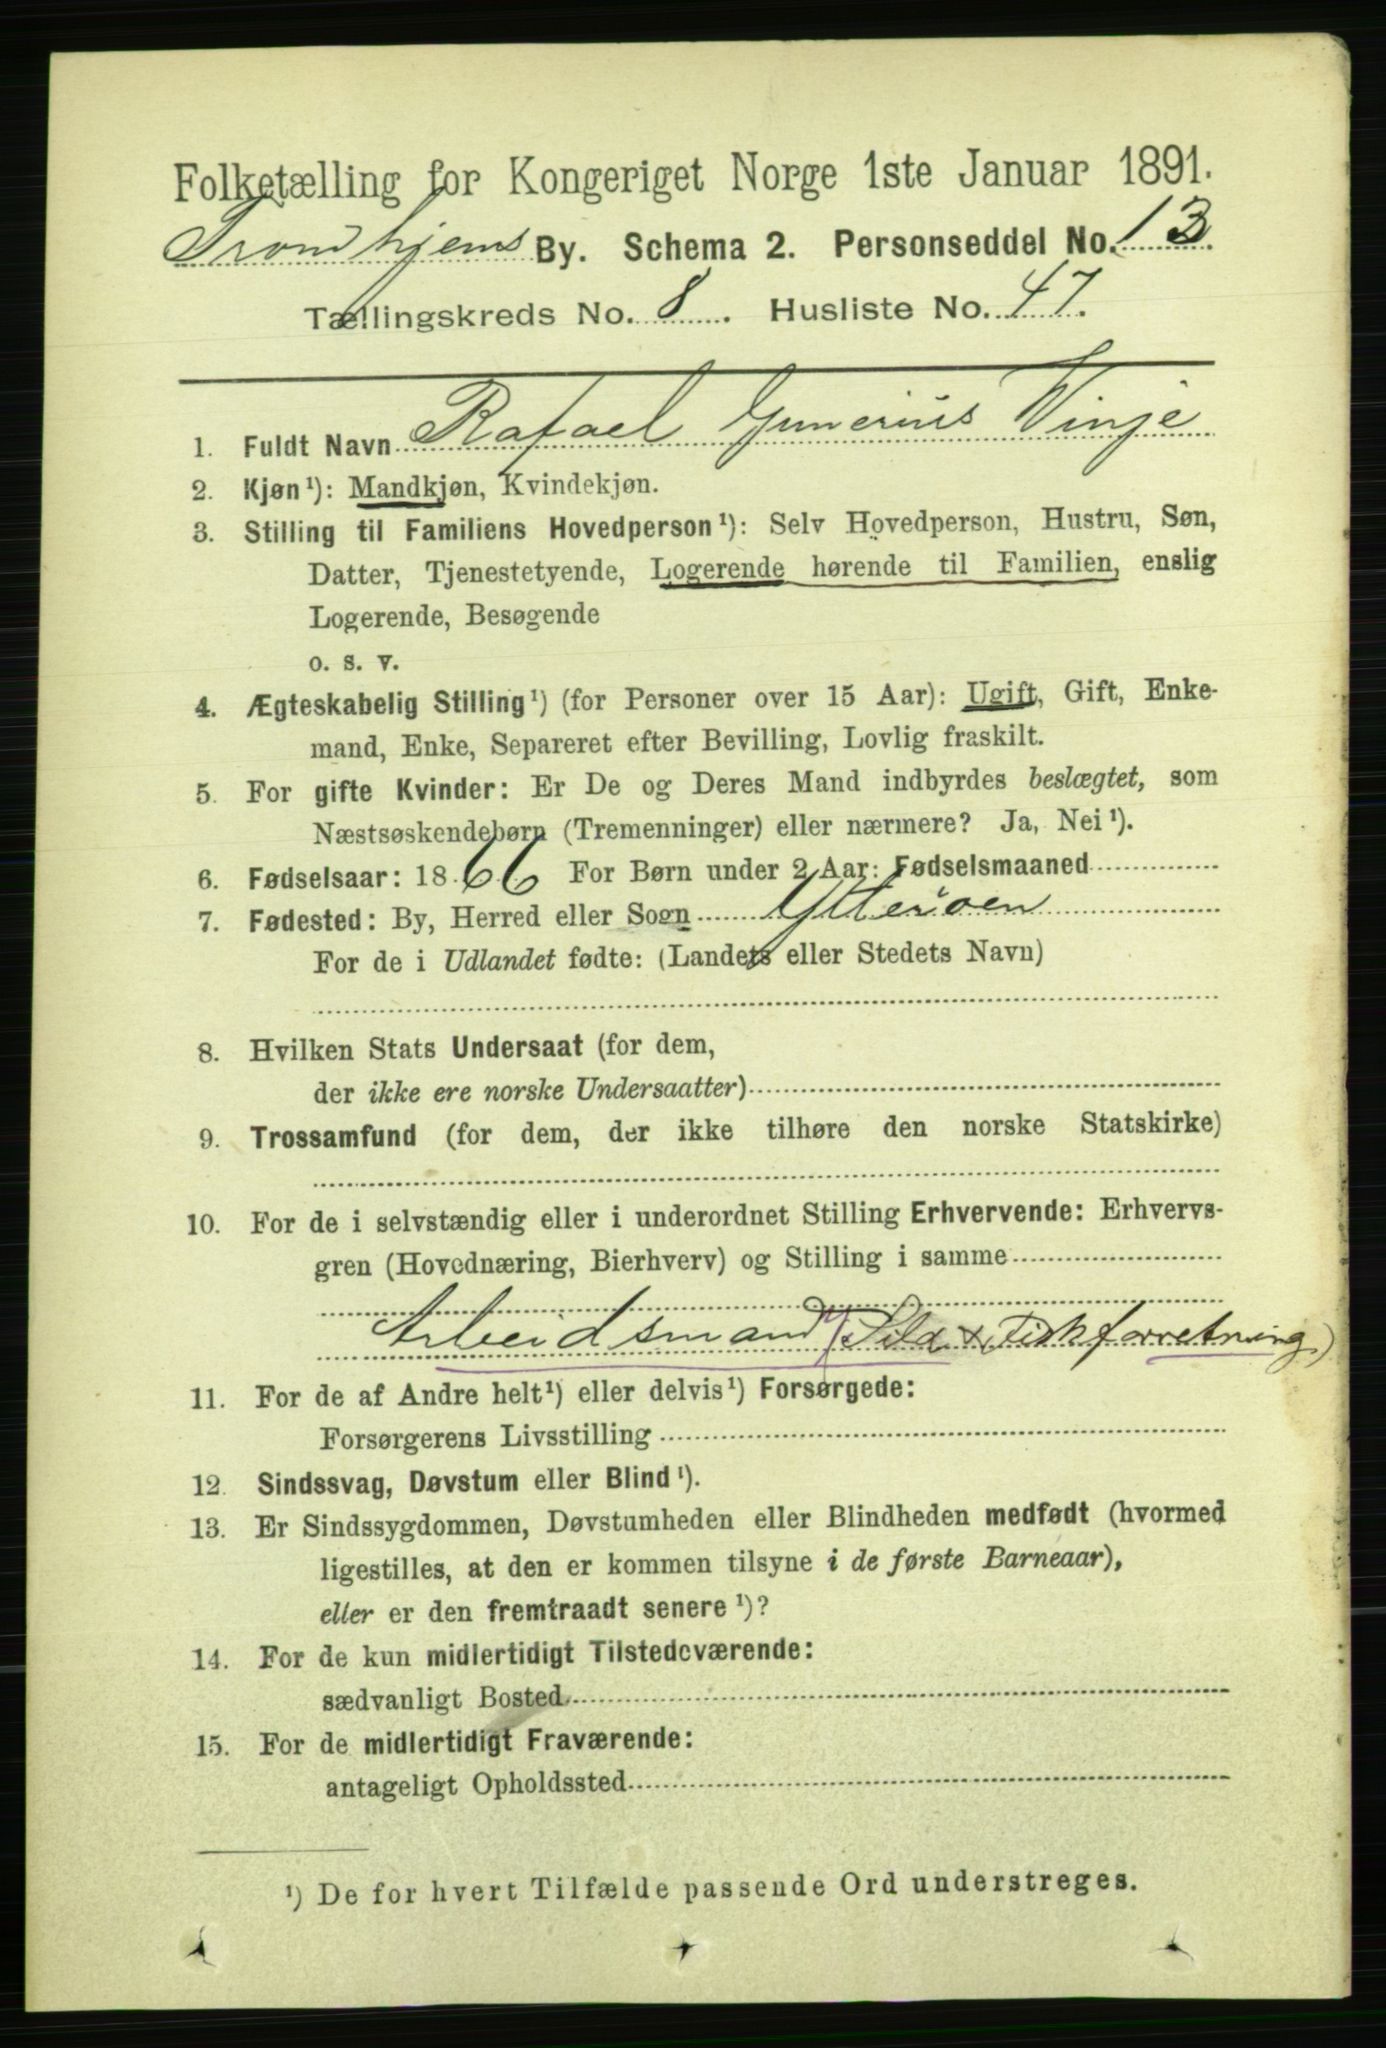 Folketælling for Kongeriget Norge 1ste Januar 1891.
Trondhjems By. Schema 2. Personseddel No. 13
Tællingskreds No. 8. Husliste No. 47.
1. Fuldt Navn Rafael Gunerius Vinje
2. Kjøn¹): Mandkjøn, Kvindekjøn.
3. Stilling til Familiens Hovedperson¹): Selv Hovedperson, Hustru, Søn,
Datter, Tjenestetyende, Logerende hørende til Familien, enslig
Logerende, Besøgende
o. s. v.
4. Ægteskabelig Stilling¹) (for Personer over 15 Aar): Ugift, Gift, Enke-
mand, Enke, Separeret efter Bevilling, Lovlig fraskilt.
5. For gifte Kvinder: Er De og Deres Mand indbyrdes beslægtet, som
Næstsøskendebørn (Tremenninger) eller nærmere? Ja, Nei¹).
6. Fødselsaar: 1866 For Børn under 2 Aar: Fødselsmaaned
7. Fødested: By, Herred eller Sogn Ytterøen
For de i Udlandet fødte: (Landets eller Stedets Navn)
8. Hvilken Stats Undersaat (for dem,
der ikke ere norske Undersaatter)
9. Trossamfund (for dem, der ikke tilhøre den norske Statskirke)
10. For de i selvstændig eller i underordnet Stilling Erhvervende: Erhvervs-
gren (Hovednæring, Bierhverv) og Stilling i samme
Arbeidsmand (Sild & Fiskforretning)
11. For de af Andre helt¹) eller delvis¹) Forsørgede:
Forsørgerens Livsstilling
12. Sindssvag, Døvstum eller Blind¹).
13. Er Sindssygdommen, Døvstumheden eller Blindheden medfødt (hvormed
ligestilles, at den er kommen tilsyne i de første Barneaar),
eller er den fremtraadt senere¹)?
14. For de kun midlertidigt Tilstedeværende:
sædvanligt Bosted
15. For de midlertidigt Fraværende:
antageligt Opholdssted
¹) De for hvert Tilfælde passende Ord understreges.